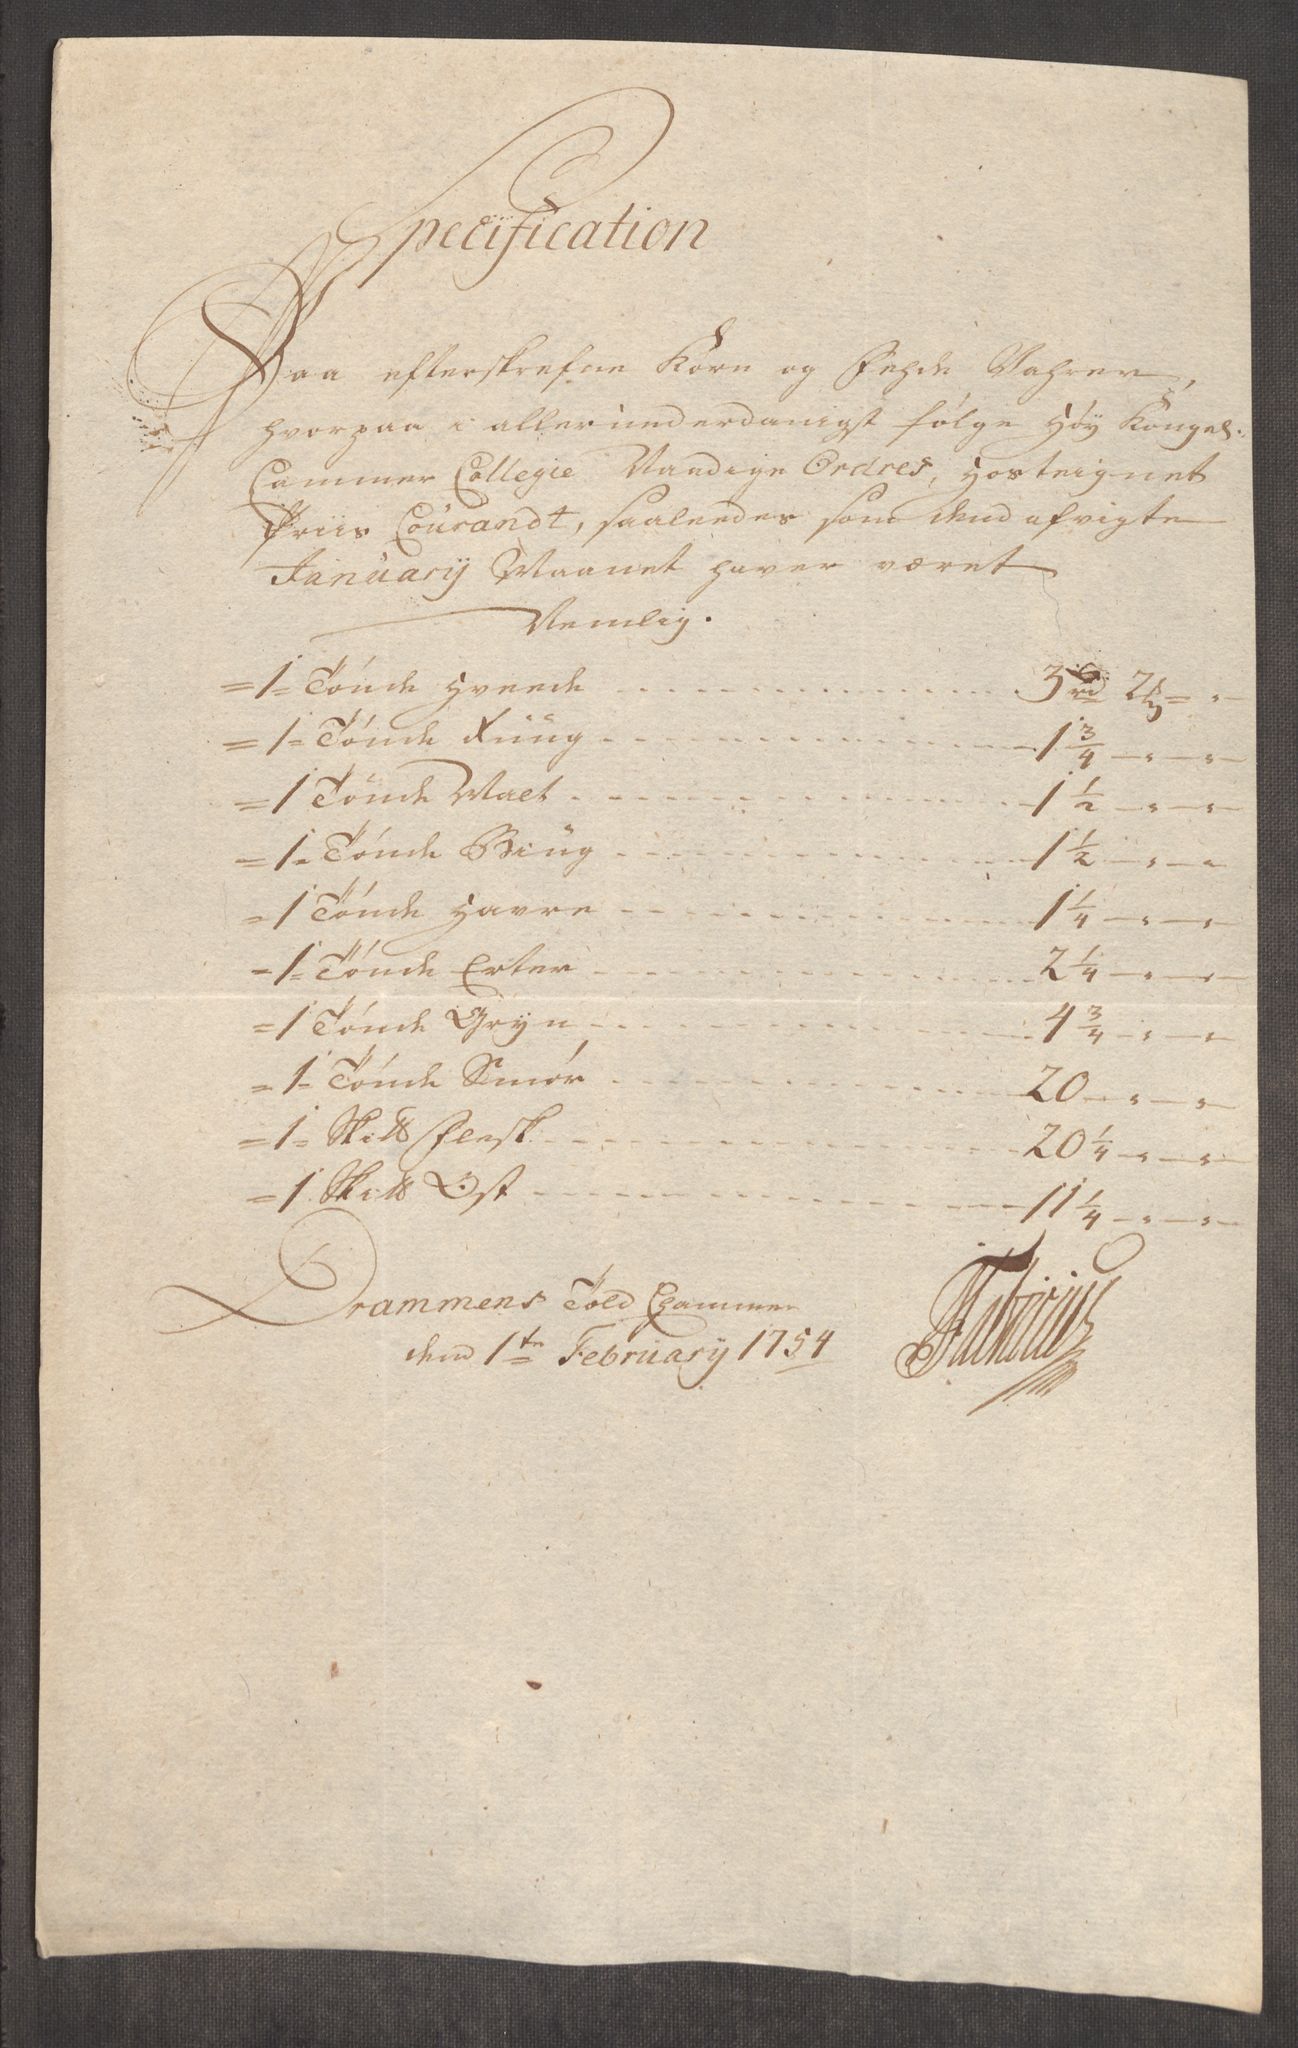 Specification
Paa efterskrefne Korn og Fehde Vahrer,
hvorpaa i allerunderdanigst følge Høÿ Kongel.
Cammer Collegie Naadige Ordres, hosteignet
Priis Courandt, saaleedes som dend afvigte
Januarÿ Maanet haver været
Nemlig.
= 1 = Tønde Hveede 3 rd 2
= 1 = Tønde Rüüg 1 3/4 " "
= 1 Tønde Malt 1 1/2 " "
= 1 = Tønde Biüg 1 1/2 " "
= 1 Tønde Havre 1 1/4 " "
= 1 = Tønde Erter 2 1/4 " "
= 1 Tønde Grÿn 4 3/4 " "
= 1 = Tønde Smør 20 " "
= 1 = Skib Flesk 20 1/4 " "
= 1 Skib Ost 11 1/4 " "
Drammens Told Cammer
dend 1te Februarÿ 1754
Fabricius